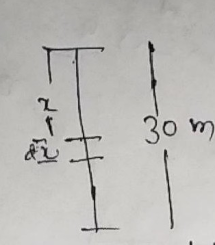 x
30 m
dx